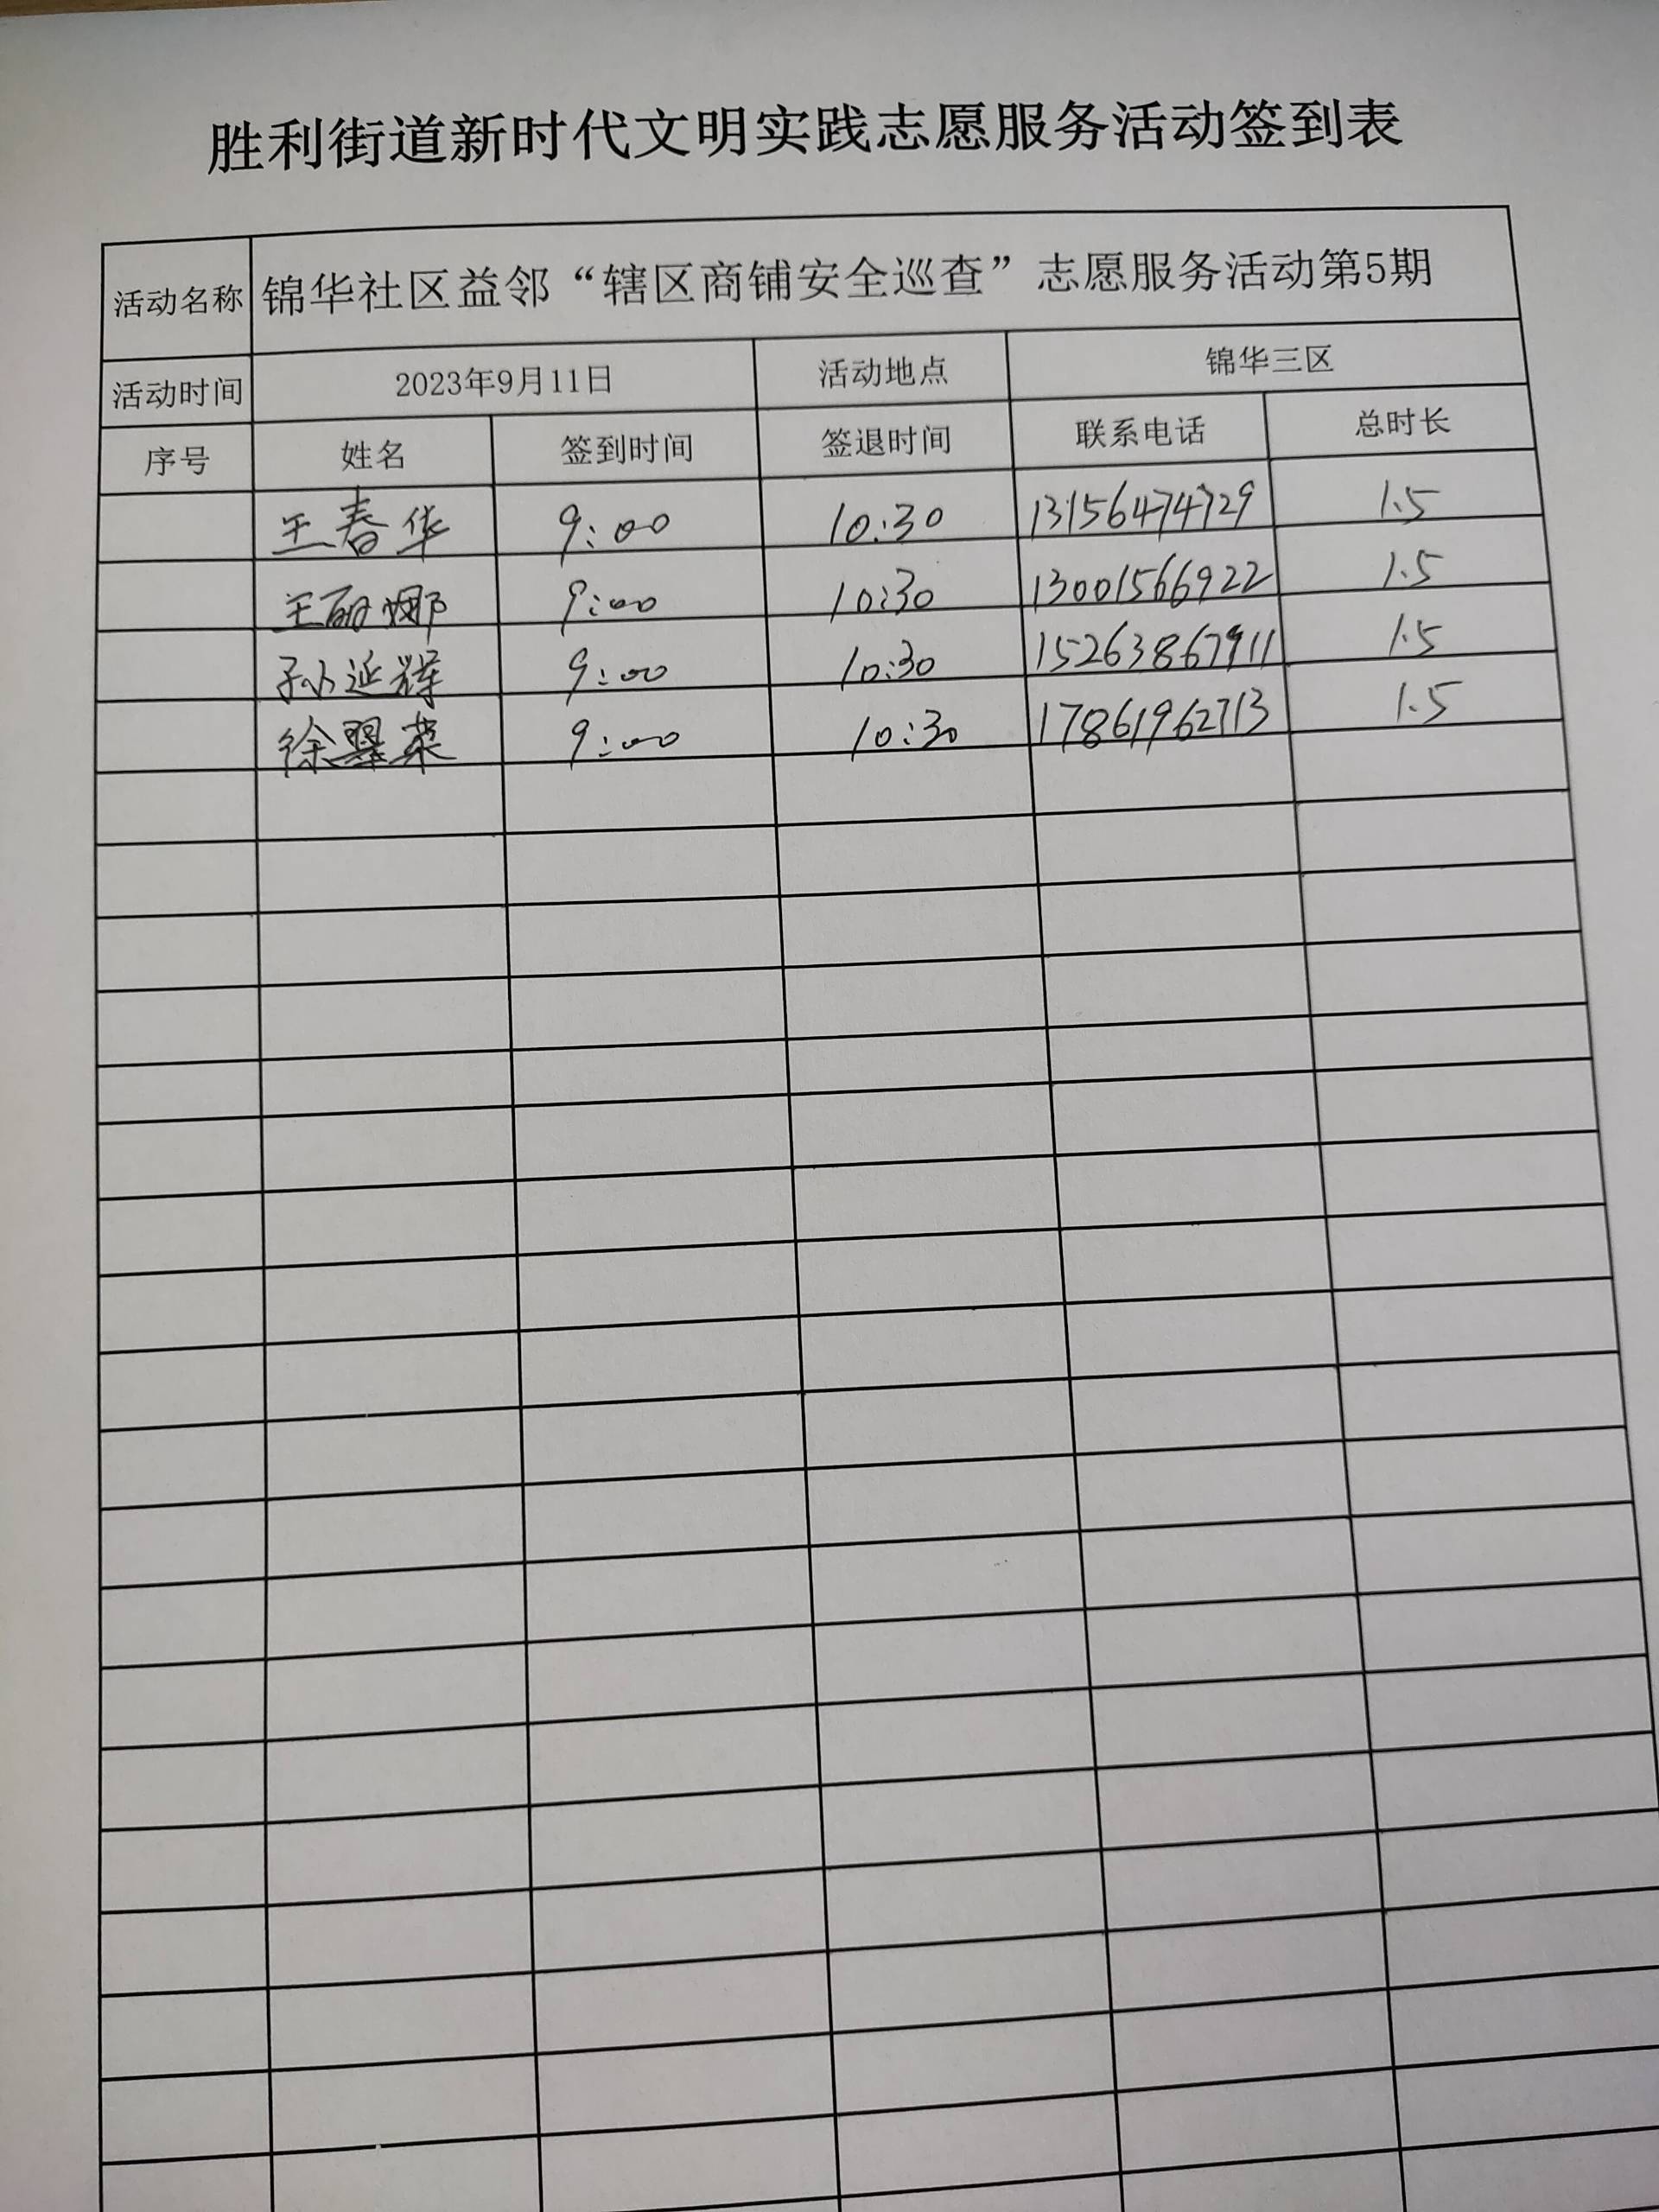 胜利街道新时代文明实践志愿服务活动签到表
活动名称 锦华社区益邻“辖区商铺安全巡查”志愿服务活动第5期
活动时间 2023年9月11日 活动地点 锦华三区
序号 姓名 签到时间 签退时间 联系电话 总时长
王春华 9:00 10:30 13156474729 1.5
王丽娜 9:00 10:30 13001566922 1.5
孙延辉 9:00 10:30 15263867911 1.5
徐翠荣 9:00 10:30 17861962713 1.5